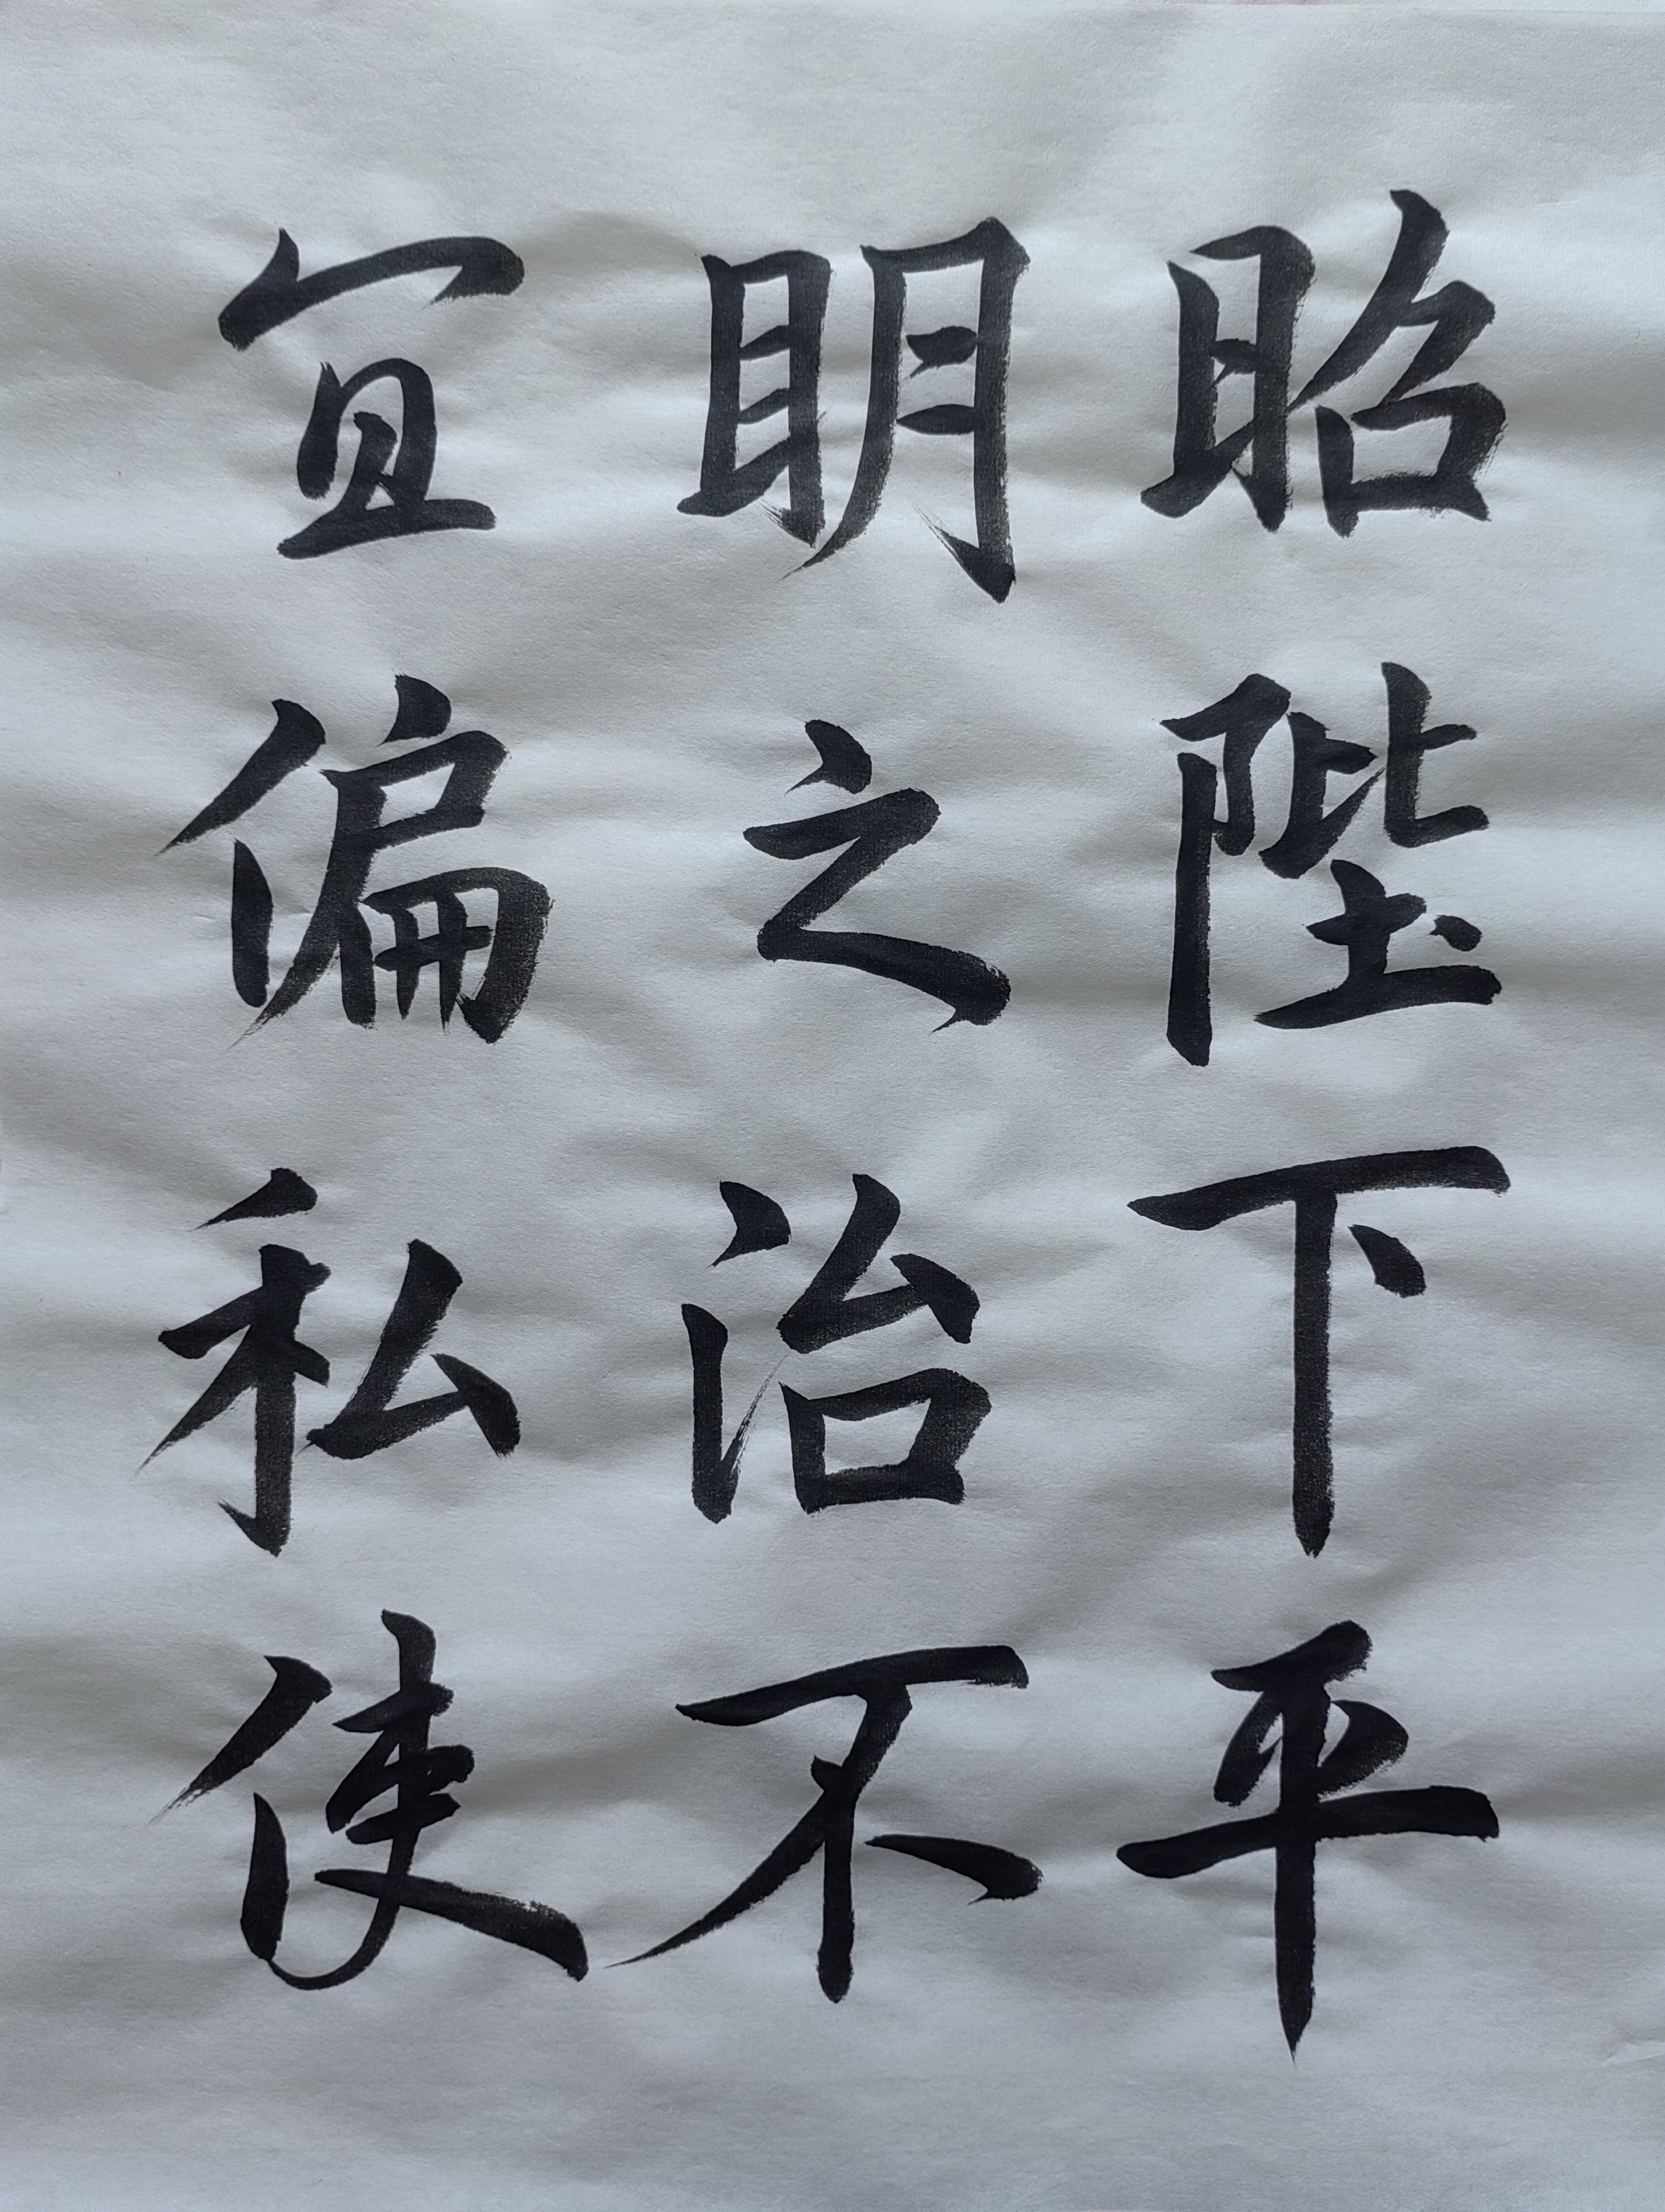 昭陛下平
明之治不
宜偏私使